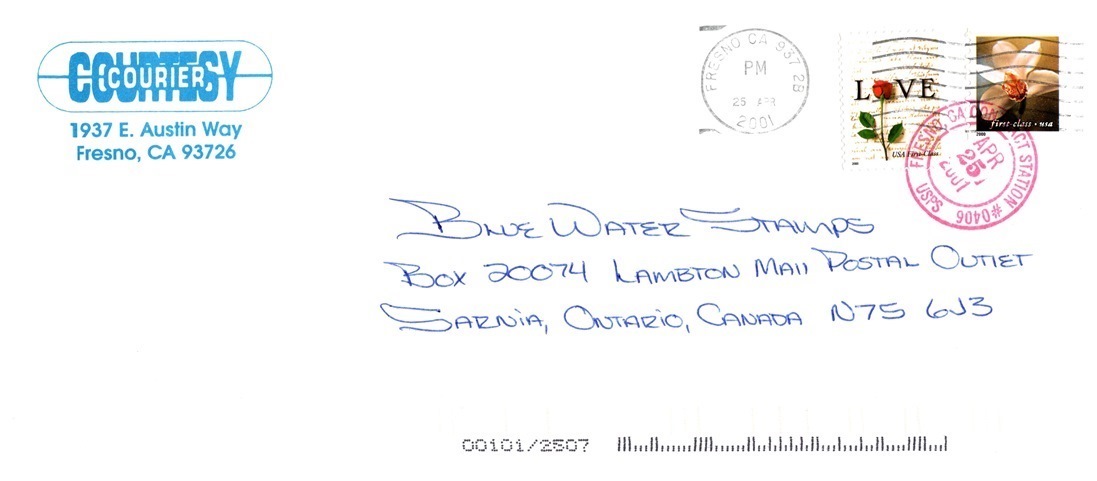 COURTESY
COURIER
1937 E. Austin Way
Fresno, CA 93726
FRESNO CA 937 28
PM
25 APR
2001
LOVE
USA First-Class
first-class • usa
2000
FRESNO, CA CONTRACT STATION #0406
APR
25
2001
USPS
BLUE WATER STAMPS
BOX 20074 LAMBTON MAll POSTAL OUTlET
SARNiA, ONTARiO, CANADA N7S 6J3
00101/2507